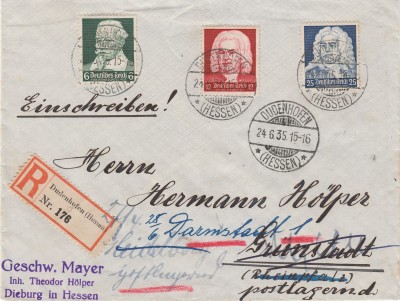 6 Deutsches Reich 6
12 Deutsches Reich 12
25 Deutsches Reich 25
24.6.35.15-16
(HESSEN)
Einschreiben!
DUDENHOFEN
24.6.35.15-16
(HESSEN)
Herrn
Hermann Hölper
R
Dudenhofen (Hessen)
Nr. 176
Darmstadt 1
Grünstadt
(Rheinpfalz)
postlagernd
Geschw. Mayer
Inh. Theodor Hölper
Dieburg in Hessen